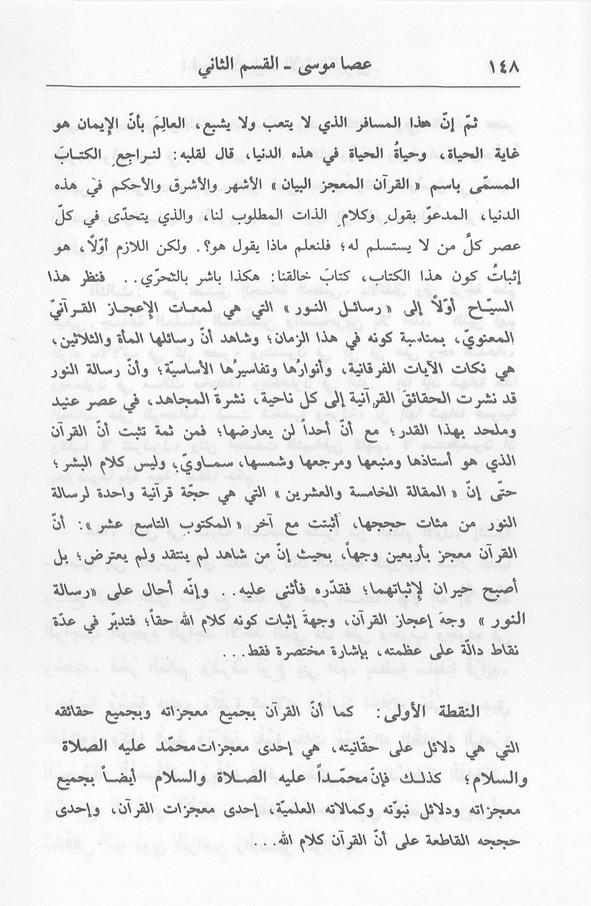 ١٤٨
عصا موسى - القسم الثاني
ثمّ إنّ هذا المسافر الذي لا يتعب ولا يشبع، العالِمَ بأنّ الإيمان هو
غاية الحياة، وحياةُ الحياة في هذه الدنيا، قال لقلبه: لنراجِعِ الكتابَ
المسمّى باسم «القرآن المعجز البيان» الأشهر والأشرق والأحكم في هذه
الدنيا، المدعوّ بقول وكلام الذات المطلوب لنا، والذي يتحدّى في كلّ
عصر كلَّ من لا يستسلم له؛ فلنعلم ماذا يقول هو؟. ولكن اللازم أوّلاً، هو
إثباتُ كون هذا الكتاب، كتابَ خالقنا: هكذا باشر بالتّحرّي.. فنظر هذا
السيّاح أوّلاً إلى «رسائل النور» التي هي لمعات الإعجاز القرآنيّ
المعنويّ، بمناسبة كونه في هذا الزمان؛ وشاهد أنّ رسائلها المأة والثلاثين،
هي نكات الآيات الفرقانية، وأنوارُها وتفاسيرُها الأساسيّة؛ وأنّ رسالة النور
قد نشرت الحقائقَ القرآنية إلى كل ناحية، نشرةَ المجاهد، في عصر عنيد
وملحد بهذا القدر؛ مع أنّ أحداً لن يعارضها؛ فمن ثمة تثبت أنّ القرآن
الذي هو أستاذها ومنبعها ومرجعها وشمسها، سماويّ؛ وليس كلام البشر؛
حتّى إنّ «المقالة الخامسة والعشرين» التي هي حجّة قرآنية واحدة لرسالة
النور من مئات حججها، أثبتت مع آخر «المكتوب التاسع عشر»: أنّ
القرآن معجز بأربعين وجهاً، بحيث إنّ من شاهد لم ينتقد ولم يعترض؛ بل
أصبح حيران لإثباتهما؛ فقدّره فأثنى عليه.. وإنّه أحال على «رسالة
النور» وجهَ إعجاز القرآن، وجهةَ إثبات كونه كلام الله حقاً؛ فتدبّر في عدّة
نقاط دالّة على عظمته، بإشارة مختصرة فقط...
النقطة الأولى: كما أنّ القرآن بجميع معجزاته وبجميع حقائقه
التي هي دلائل على حقّانيته، هي إحدى معجزات محمّد عليه الصلاة
والسلام؛ كذلك فإنّ محمّداً عليه الصلاة والسلام أيضاً بجميع
معجزاته ودلائل نبوّته وكمالاته العلميّة، إحدى معجزات القرآن، وإحدى
حججه القاطعة على أنّ القرآن كلام الله...